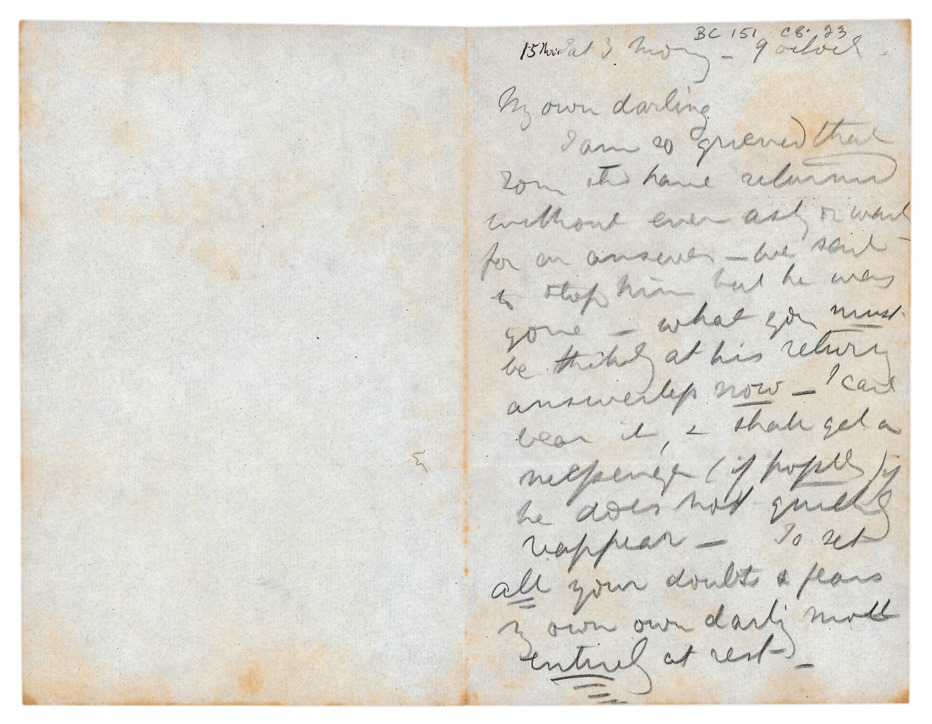 BC 151 CB. 23
15 Nov. Sat 3. Mong — 9 oclock
My own darling
I am so grieved that
Tom shd have returned
without ever askg or waitg
for an answer — we sent
to stop him but he was
gone — what you must
be thinkg at his returng
answerless now — I cant
bear it, & shall get a
messenger (if possible) if
he does not quickly
reappear — To set
all your doubts & fears
my own own darling
entirely at rest —